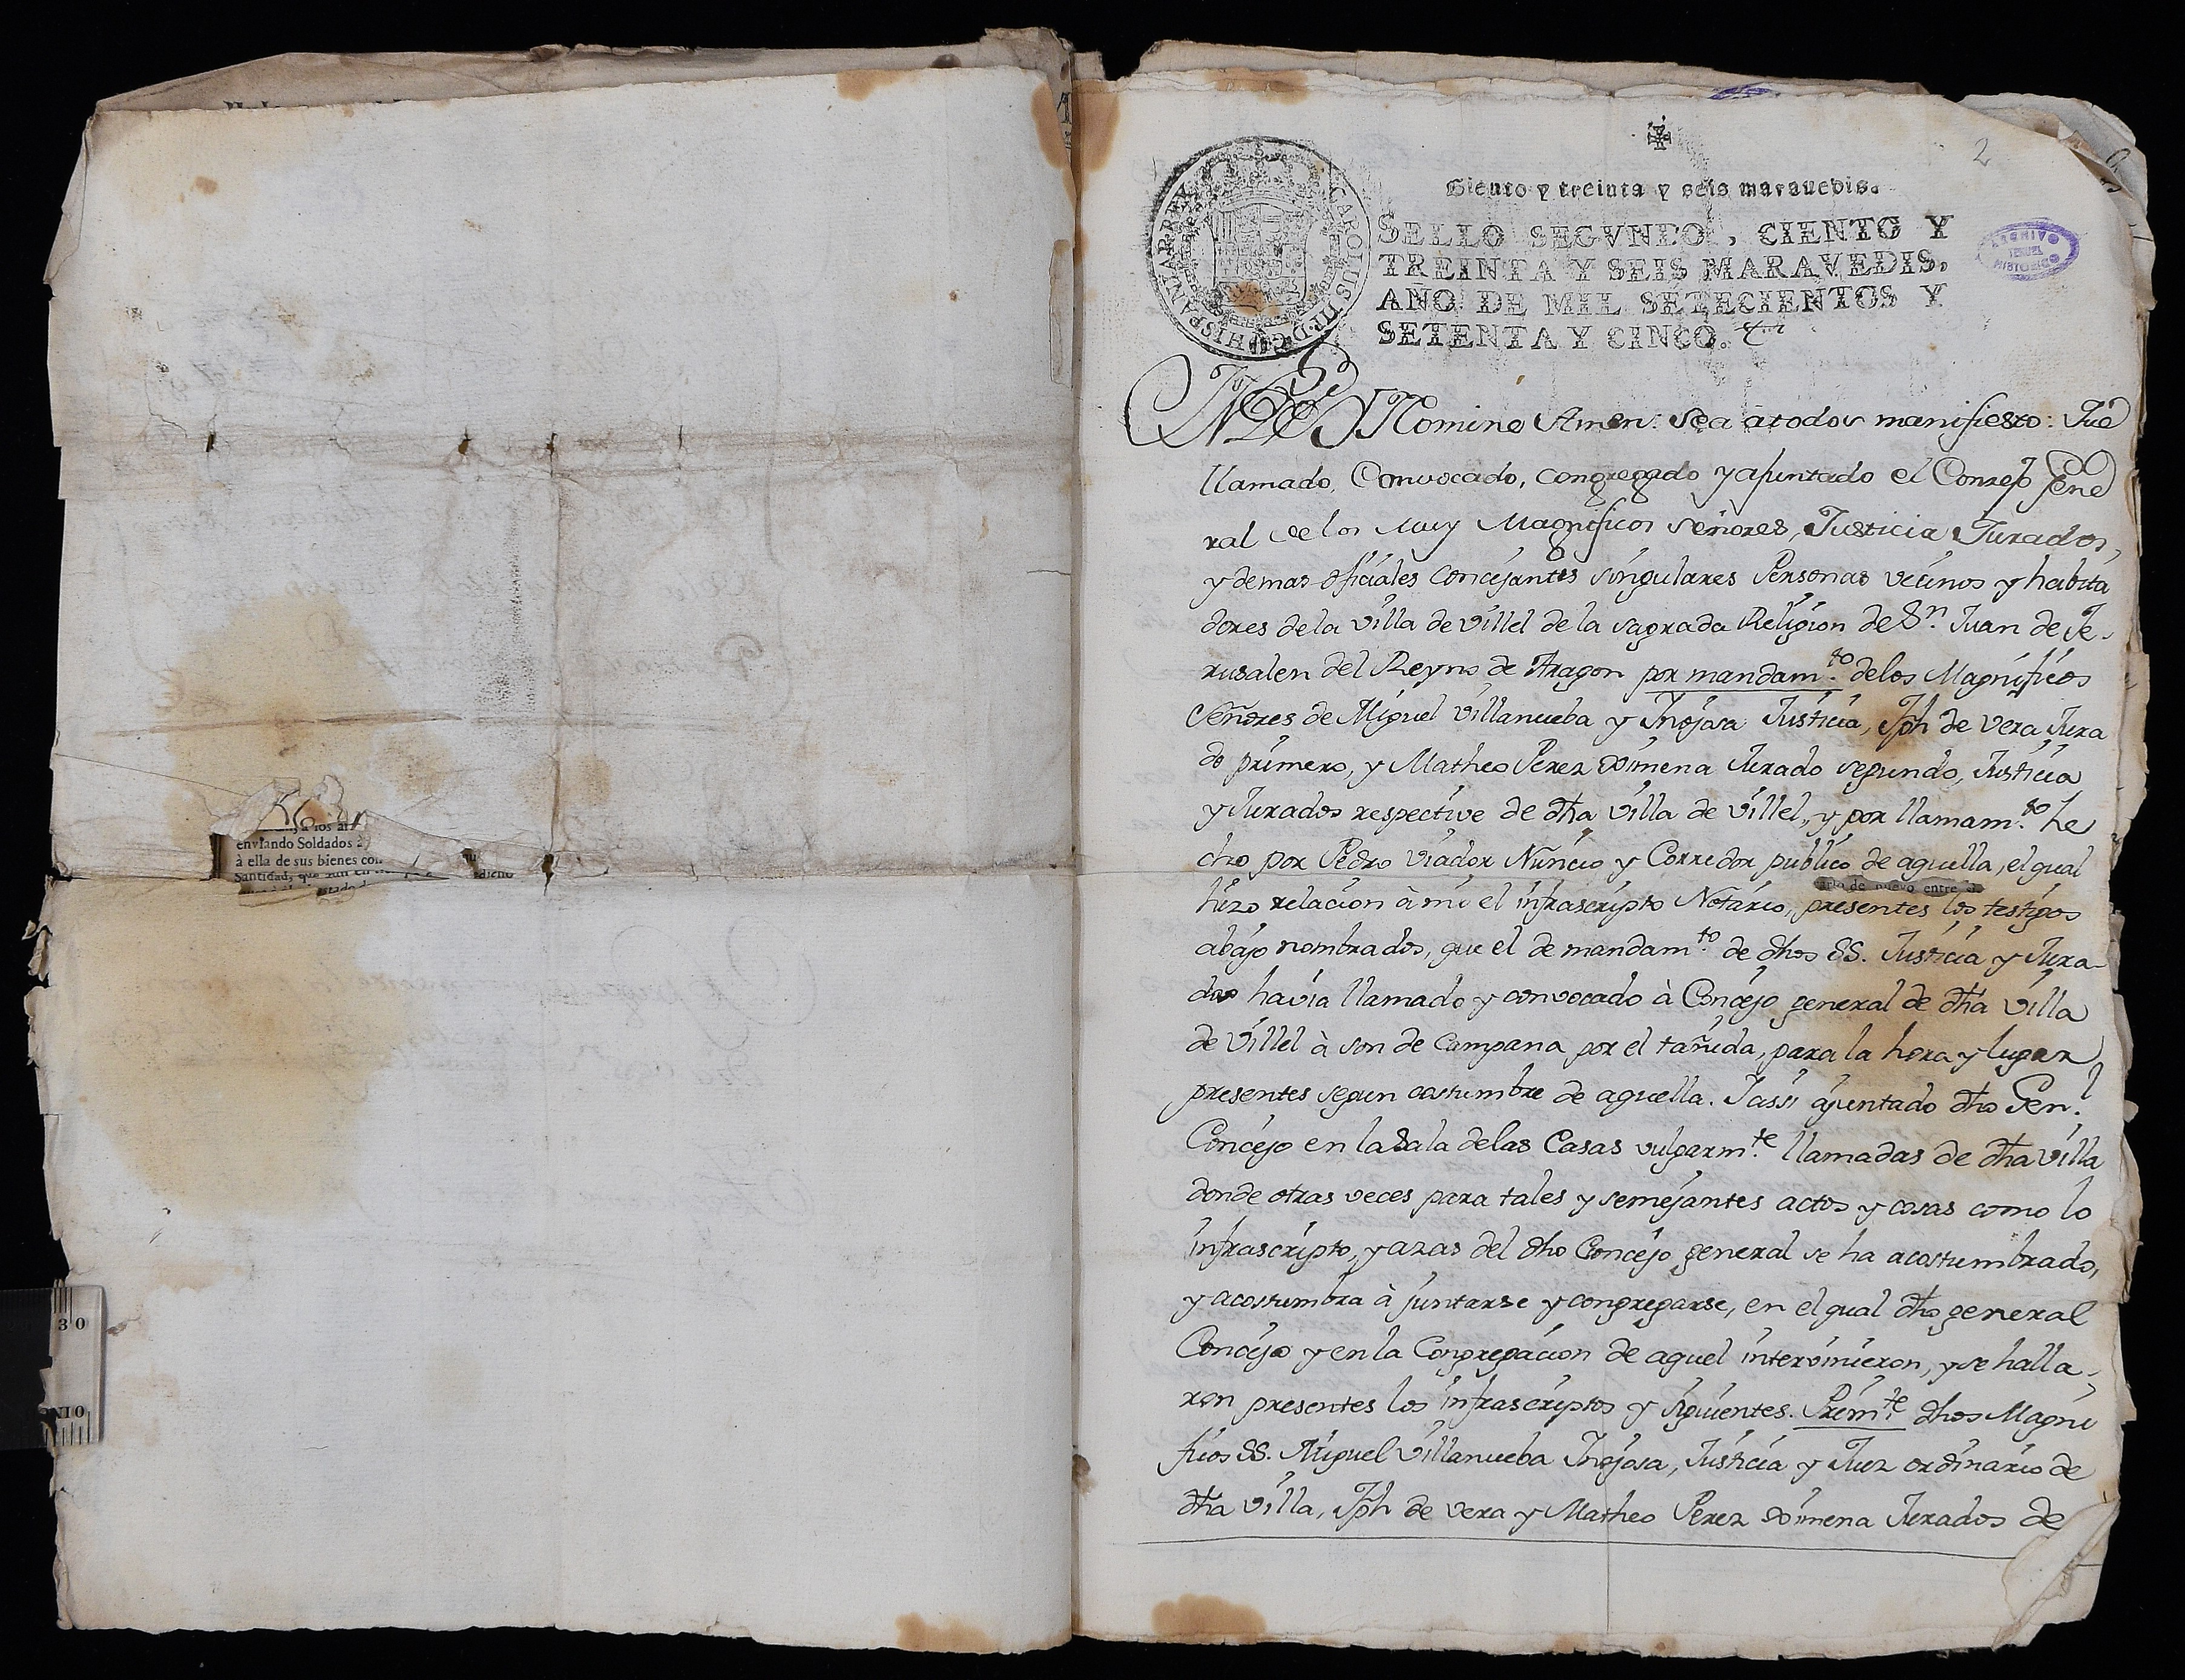 enviando Soldados 27
à ella de sus bienes con
Santidad, que aun en
2
Siento y treinta y seis marauedis.
SELLO SEGVNDO, CIENTO Y
TREINTA Y SEIS MARAVEDIS,
AÑO DE MIL SETECIENTOS Y
SETENTA Y CINCO.
CAROLUS III D G HISPANIAR REX
ARCHIVO
TERUEL
HISTORICO
Nomine Amen: Sea atodos manifiesto: Que
llamado, Convocado, congregado y ajuntado el Consejo Gene
ral de los Muy Magnificos Señores, Justicia Jurados,
y demas oficiales concejantes singulares Personas vecinos y habita
dores de la villa de villel de la sagrada Religion de Sn. Juan de Je-
rusalen del Reyno de Aragon por mandamto. delos Magnificos
Señores de Miguel Villanueba y Inojosa Justicia, Jph de Vera Jura
do primero, y Matheo Perez Ximena Jurado segundo, Justicia
y Jurados respective de dha villa de villel, y por llamamto. he
cho por Pedro Viador Nuncio y Corredor publico de aquella, el qual
arto de nuevo entre de
hizo relacion à mi el infrascripto Notario, presentes los testigos
abajo nombrados, que el de mandamto. de dhos SS. Justicia y Jura-
dos havia llamado y convocado à Concejo general de dha villa
de Villel à son de Campana por el tañida, para la hora y lugar
presentes segun costumbre de aquella. Iassi ajuntado dho Genl.
Concejo en la Sala delas Casas vulgarmte. llamadas de dha villa
donde otras veces para tales y semejantes actos y cosas como lo
infrascripto, y azas del dho Concejo general se ha acostumbrado,
y acostumbra à juntarse y congregarse, en el qual dho general
Concejo y en la Congregacion de aquel intervinieron, y se halla-
ron presentes los infrascriptos y siguientes. Primte. dhos Magni
ficos SS. Miguel Villanueba Inojosa, Justicia y Juez ordinario de
dha villa, Jph de Vera y Matheo Perez Ximena Jurados de
30